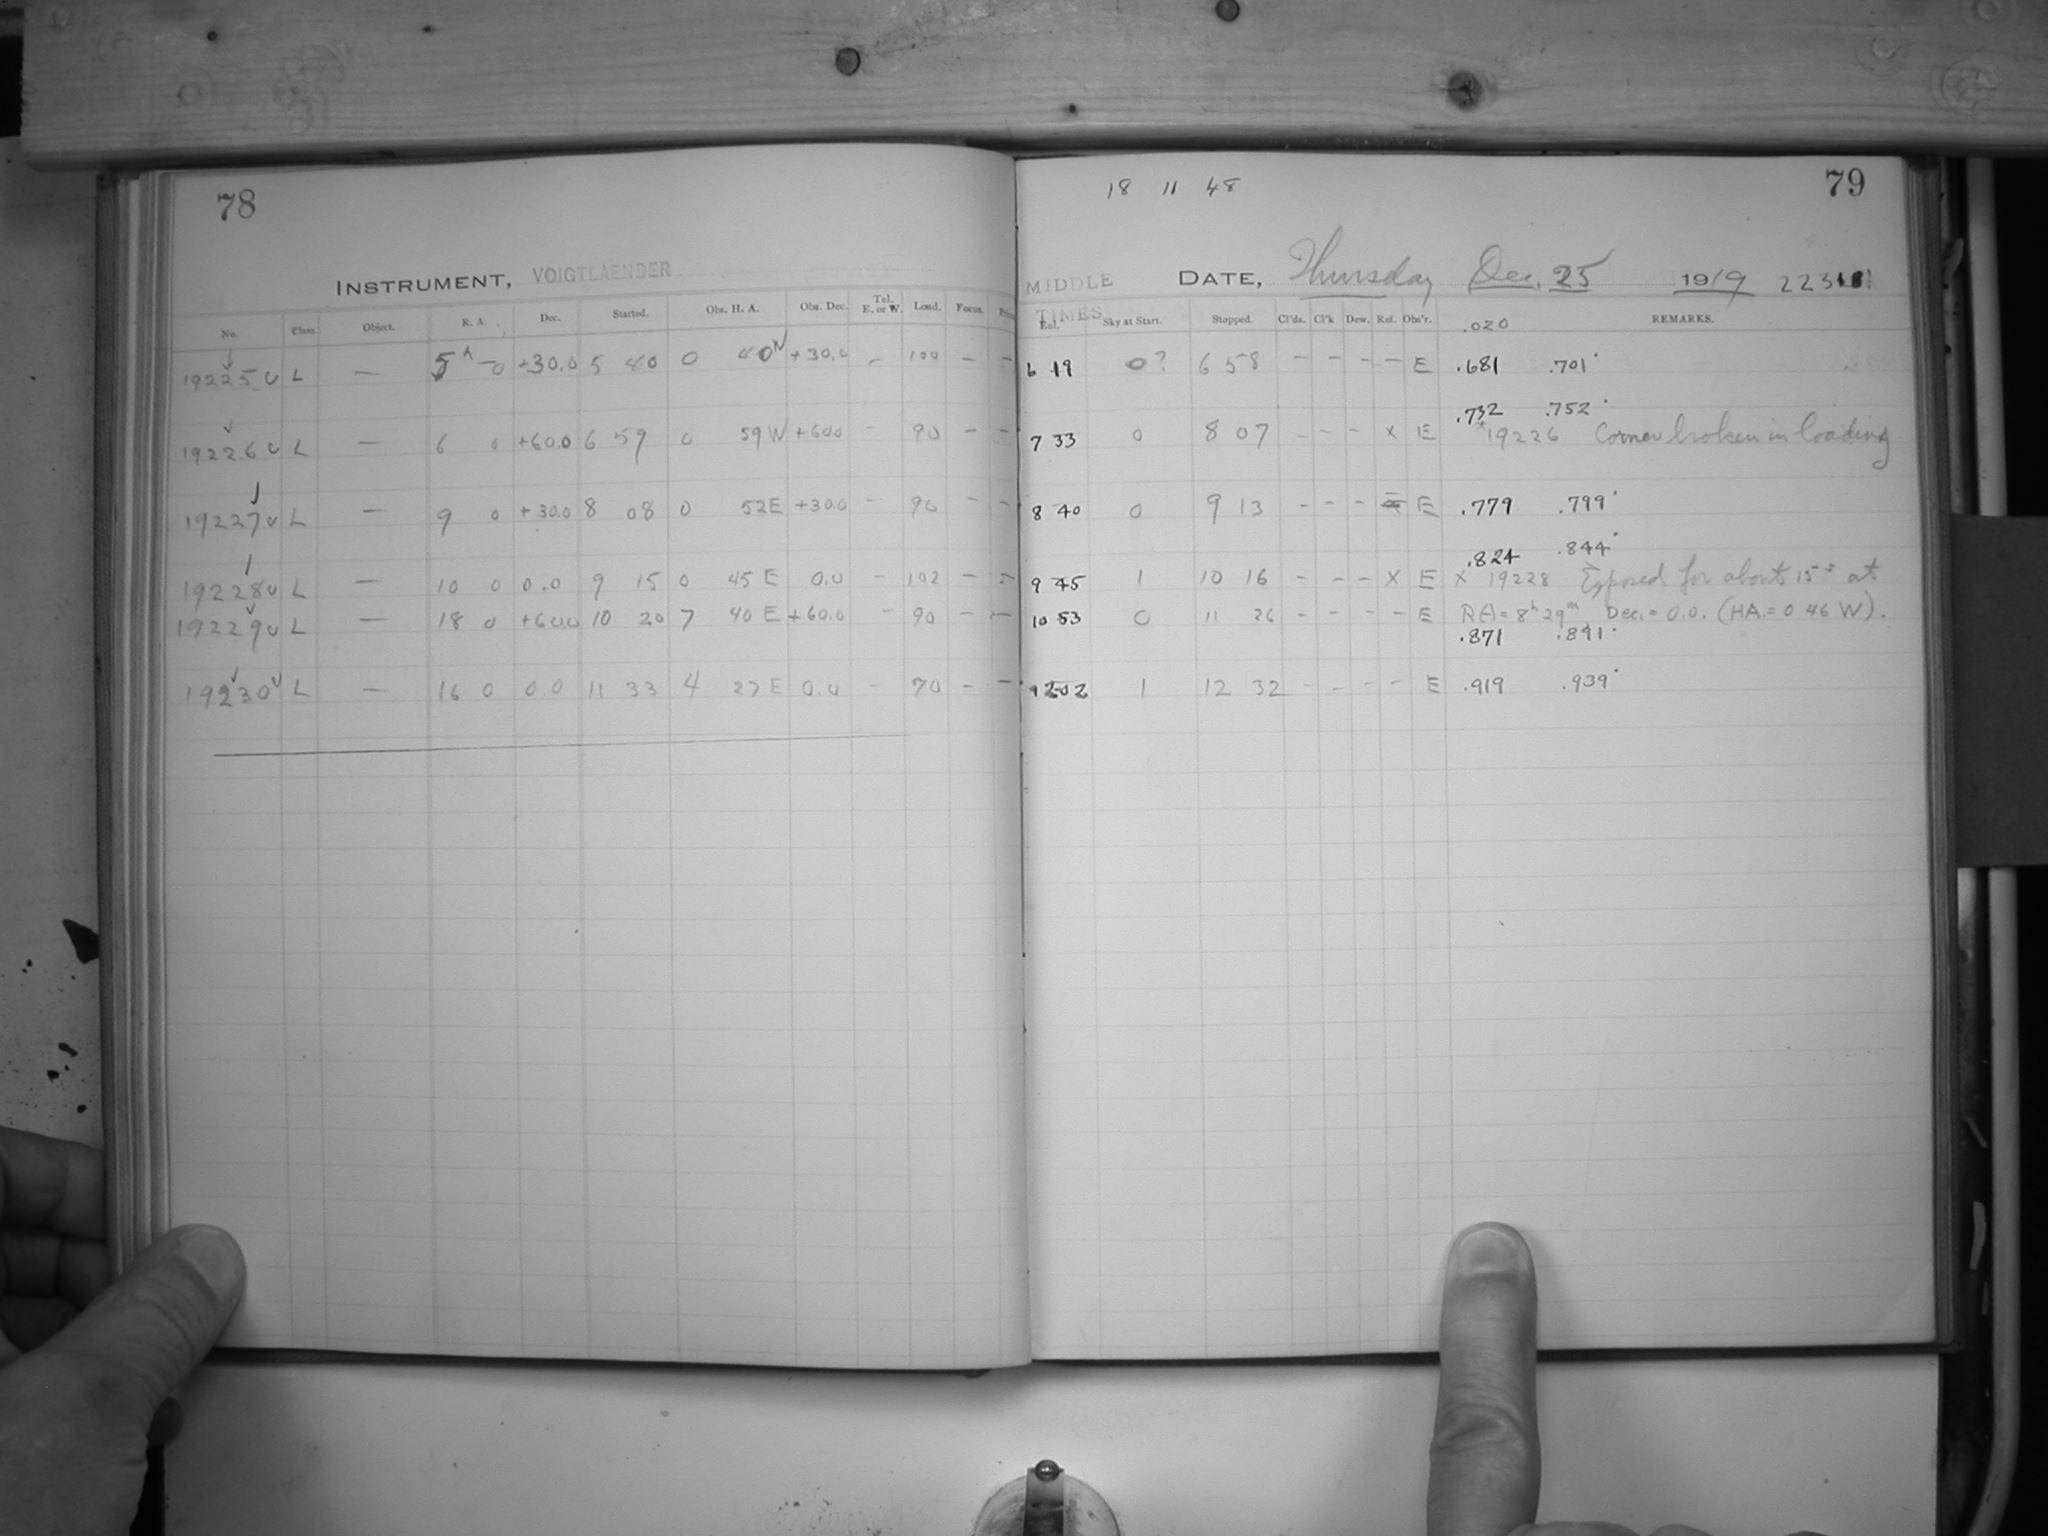 78
INSTRUMENT, VOIGTLAENDER
No. Class. Object. R. A. Dec. Started. Obs. H. A. Obs. Dec. Tel. E. or W. Load. Focus.
19225 L — 5h 0 +30.0 5 40 0 40 W +30.0 - 100 — —
19226 L — 6 0 +60.0 6 59 0 59 W +60.0 - 90 - -
19227 L — 9 0 +30.0 8 08 0 52 E +30.0 - 90 - -
19228 L — 10 0 0.0 9 15 0 45 E 0.0 - 102 -
19229 L — 18 0 +60.0 10 20 7 40 E +60.0 - 90 - —
19230 L — 16 0 0.0 11 33 4 27 E 0.0 - 70 - —
18 11 48
79
MIDDLE TIMES
DATE, Thursday Dec. 25 1919
Sky at Start. Stopped. Cl'ds. Cl'k Dew. Ref. Obs'r. .020 REMARKS.
6 19 0? 6 58 — — — — E .681 .701
.732 .752
7 33 0 8 07 - - - x E x 19226 Corner broken in loading
8 40 0 9 13 - - - E .779 .799
.824 .844
9 45 1 10 16 - - - X E x 19228 Exposed for about 15s at
10 53 0 11 26 - - - - E RA = 8h 29m Dec. = 0.0. (HA. = 0 46 W).
.871 .891
12 02 1 12 32 - - - - E .919 .939